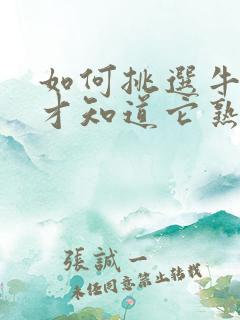 如何挑選牛
才知道它熟
張誠一
未經同意禁止轉載